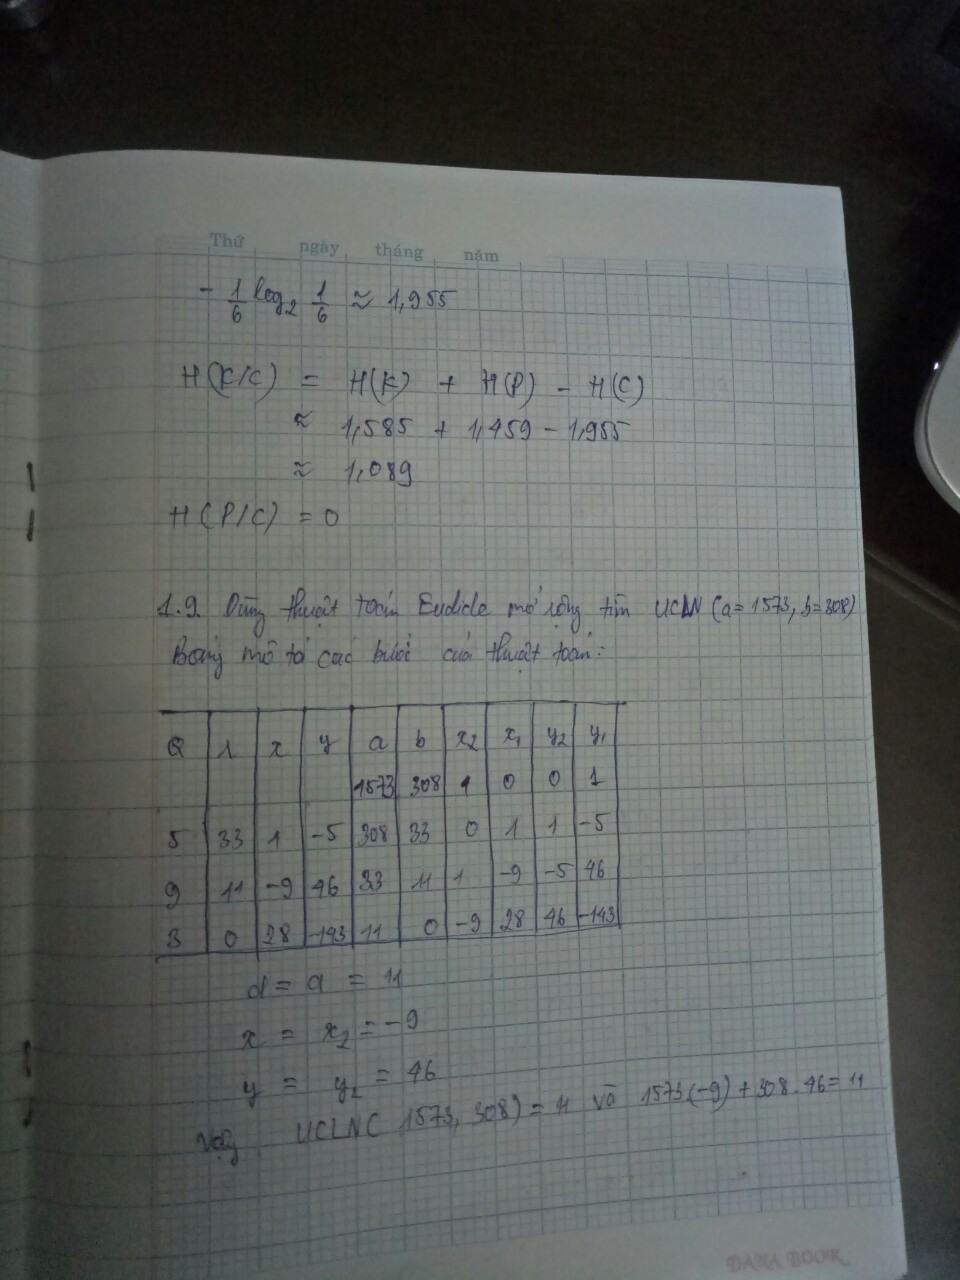 Thứ ngày tháng năm
- 1/6 log₂ 1/6 ≈ 1,955
H(K/C) = H(K) + H(P) - H(C)
≈ 1,585 + 1,459 - 1,955
≈ 1,089
H(P/C) = 0
1.9. Dùng thuật toán Euclide mở rộng tìm UCLN (a=1573, b=308)
Bảng mô tả các bước của thuật toán:
Q r x y a b x₂ x₁ y₂ y₁
1573 308 1 0 0 1
5 33 1 -5 308 33 0 1 1 -5
9 11 -9 46 33 11 1 -9 -5 46
3 0 28 -143 11 0 -9 28 46 -143
d = a = 11
x = x₂ = -9
y = y₂ = 46
Vậy UCLN( 1573, 308) = 11 và 1573(-9) + 308.46 = 11
DANA BOOK